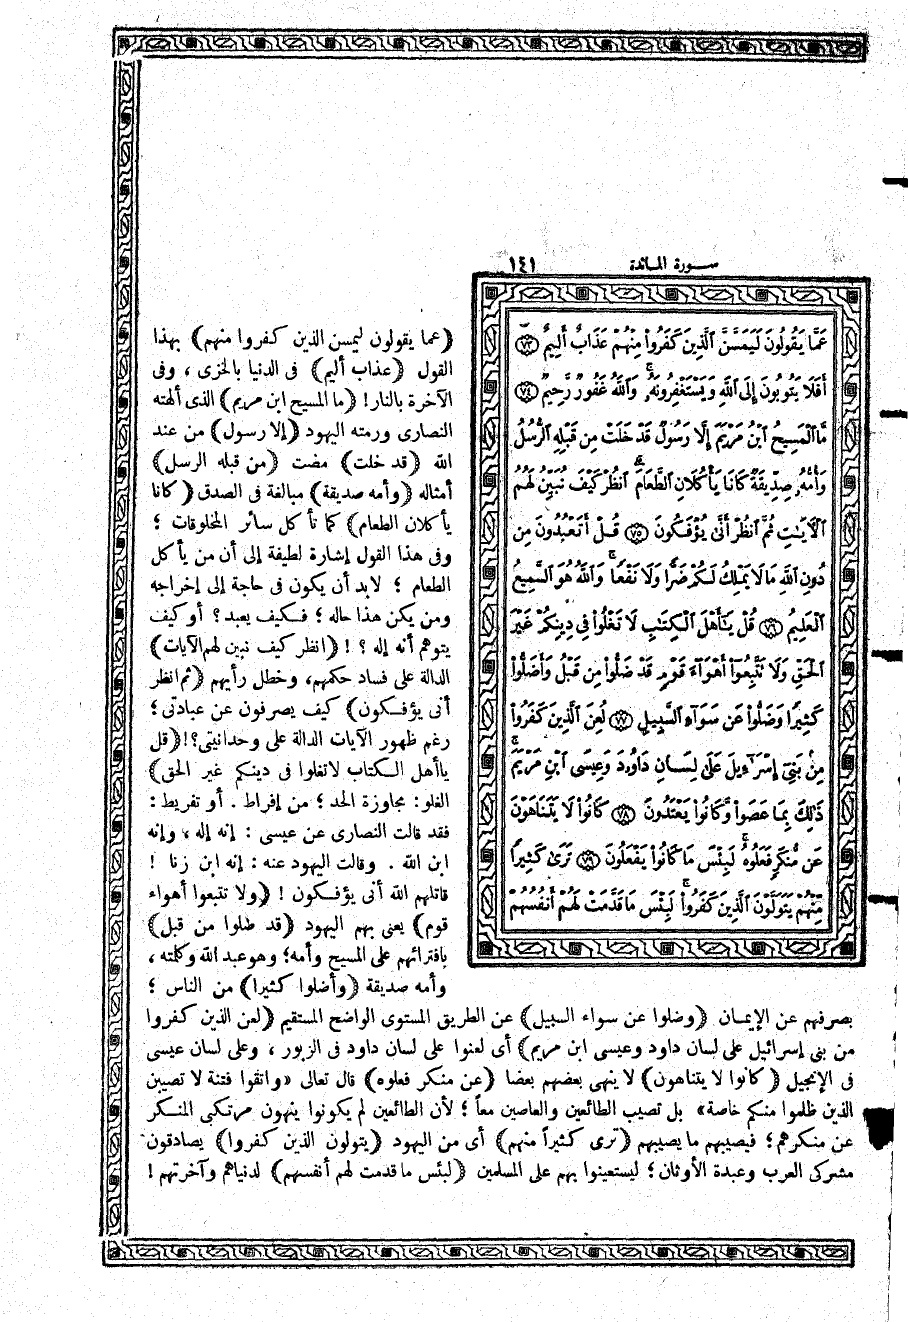 سورة المائدة ١٤١
عَمَّا يَقُولُونَ لَيَمَسَّنَّ ٱلَّذِينَ كَفَرُوا۟ مِنْهُمْ عَذَابٌ أَلِيمٌ ٧٣
أَفَلَا يَتُوبُونَ إِلَى ٱللَّهِ وَيَسْتَغْفِرُونَهُۥ وَٱللَّهُ غَفُورٌ رَّحِيمٌ ٧٤
مَّا ٱلْمَسِيحُ ٱبْنُ مَرْيَمَ إِلَّا رَسُولٌ قَدْ خَلَتْ مِن قَبْلِهِ ٱلرُّسُلُ
وَأُمُّهُۥ صِدِّيقَةٌ كَانَا يَأْكُلَانِ ٱلطَّعَامَ ٱنظُرْ كَيْفَ نُبَيِّنُ لَهُمُ
ٱلْءَايَٰتِ ثُمَّ ٱنظُرْ أَنَّىٰ يُؤْفَكُونَ ٧٥ قُلْ أَتَعْبُدُونَ مِن
دُونِ ٱللَّهِ مَا لَا يَمْلِكُ لَكُمْ ضَرًّا وَلَا نَفْعًا وَٱللَّهُ هُوَ ٱلسَّمِيعُ
ٱلْعَلِيمُ ٧٦ قُلْ يَٰٓأَهْلَ ٱلْكِتَٰبِ لَا تَغْلُوا۟ فِى دِينِكُمْ غَيْرَ
ٱلْحَقِّ وَلَا تَتَّبِعُوٓا۟ أَهْوَآءَ قَوْمٍ قَدْ ضَلُّوا۟ مِن قَبْلُ وَأَضَلُّوا۟
كَثِيرًا وَضَلُّوا۟ عَن سَوَآءِ ٱلسَّبِيلِ ٧٧ لُعِنَ ٱلَّذِينَ كَفَرُوا۟
مِنۢ بَنِىٓ إِسْرَٰٓءِيلَ عَلَىٰ لِسَانِ دَاوُۥدَ وَعِيسَى ٱبْنِ مَرْيَمَ
ذَٰلِكَ بِمَا عَصَوا۟ وَّكَانُوا۟ يَعْتَدُونَ ٧٨ كَانُوا۟ لَا يَتَنَاهَوْنَ
عَن مُّنكَرٍ فَعَلُوهُ لَبِئْسَ مَا كَانُوا۟ يَفْعَلُونَ ٧٩ تَرَىٰ كَثِيرًا
مِّنْهُمْ يَتَوَلَّوْنَ ٱلَّذِينَ كَفَرُوا۟ لَبِئْسَ مَا قَدَّمَتْ لَهُمْ أَنفُسُهُمْ
(عما يقولون ليمسن الذين كفروا منهم) بهذا
القول (عذاب أليم) فى الدنيا بالخزى ، وفى
الآخرة بالنار! (ما المسيح ابن مريم) الذى ألهته
النصارى ورمته اليهود (إلا رسول) من عند
الله (قد خلت) مضت (من قبله الرسل)
أمثاله (وأمه صديقة) مبالغة فى الصدق (كانا
يأكلان الطعام) كما تأكل سائر المخلوقات ؛
وفى هذا القول إشارة لطيفة إلى أن من يأكل
الطعام ؛ لابد أن يكون فى حاجة إلى إخراجه
ومن يكن هذا حاله ؛ فكيف يعبد؟ أو كيف
يتوهم أنه إله ؟! (انظر كيف نبين لهم الآيات)
الدالة على فساد حكمهم، وخطل رأيهم (ثم انظر
أنى يؤفكون) كيف يصرفون عن عبادتى؛
رغم ظهور الآيات الدالة على وحدانيتى؟!(قل
ياأهل الكتاب لاتغلوا فى دينكم غير الحق)
الغلو: مجاوزة الحد ؛ من إفراط . أو تفريط :
فقد قالت النصارى عن عيسى : إنه إله ، وإنه
ابن الله . وقالت اليهود عنه : إنه ابن زنا !
قاتلهم الله أنى يؤفكون ! (ولا تتبعوا أهواء
قوم) يعنى بهم اليهود (قد ضلوا من قبل)
بافترائهم على المسيح وأمه؛ وهو عبد الله وكلمته ،
وأمه صديقة (وأضلوا كثيرا) من الناس ؛
بصرفهم عن الإيمان (وضلوا عن سواء السبيل) عن الطريق المستوى الواضح المستقيم (لعن الذين كفروا
من بنى إسرائيل على لسان داود وعيسى ابن مريم) أى لعنوا على لسان داود فى الزبور ، وعلى لسان عيسى
فى الإنجيل (كانوا لا يتناهون) لا ينهى بعضهم بعضا (عن منكر فعلوه) قال تعالى «واتقوا فتنة لا تصيبن
الذين ظلموا منكم خاصة» بل تصيب الطائعين والعاصين معاً ؛ لأن الطائعين لم يكونوا ينهون مرتكبى المنكر
عن منكرهم ؛ فيصيبهم ما يصيبهم (ترى كثيراً منهم) أى من اليهود (يتولون الذين كفروا) يصادقون
مشركى العرب وعبدة الأوثان ؛ ليستعينوا بهم على المسلمين (لبئس ما قدمت لهم أنفسهم) لدنياهم وآخرتهم !